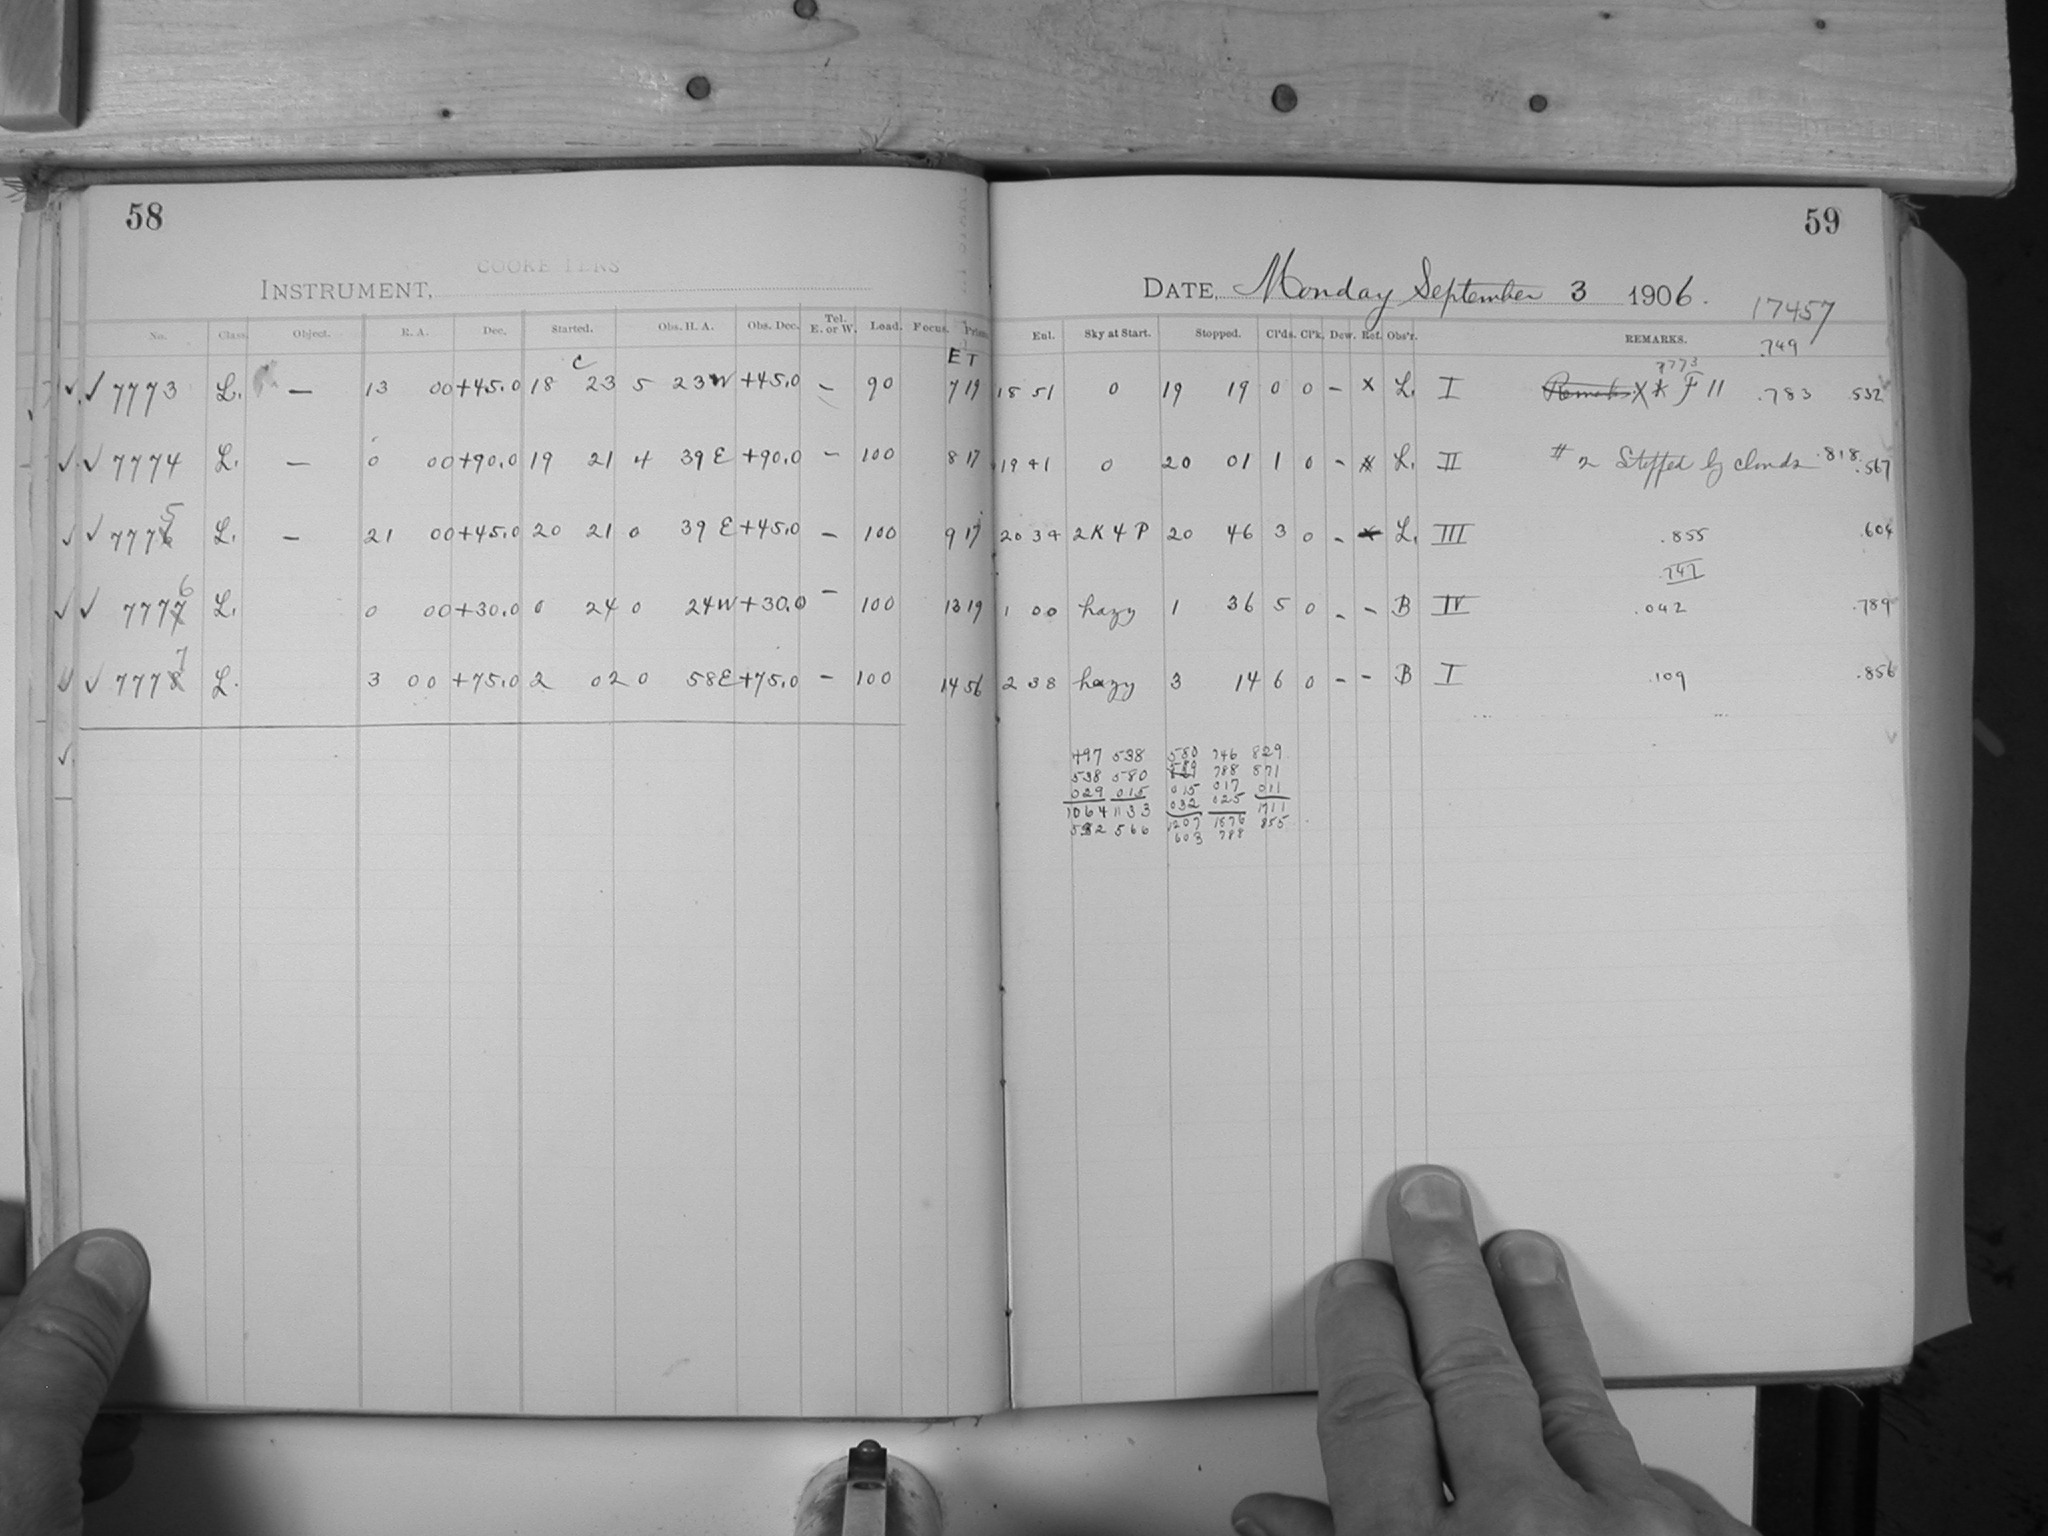 58
59
COOKE LENS
INSTRUMENT,
DATE, Monday September 3 1906.
17457
No. Class. Object. R. A. Dec. Started. Obs. H. A. Obs. Dec. Tel. E. or W. Load. Focus. Enl. Sky at Start. Stopped. Cl'ds. Cl'k. Dew. Ref. Obs'r. REMARKS.
.749
C E T 7773
✓ ✓ 7773 L. — 13 00 +45.0 18 23 5 23 W +45.0 – 90 7 19 18 51 0 19 19 0 0 – x L. I Remarks X K F 11 .783 .532
✓ ✓ 7774 L. — 0 00 +90.0 19 21 4 39 E +90.0 – 100 8 17 19 41 0 20 01 1 0 – x L. II # 2 Stopped by clouds .818 .567
5
✓ ✓ 7776 L. – 21 00 +45.0 20 21 0 39 E +45.0 – 100 9 17 20 34 2K4P 20 46 3 0 – x L. III .855 .604
.747
6
✓ ✓ 7777 L. 0 00 +30.0 0 24 0 24 W +30.0 – 100 13 19 1 00 hazy 1 36 5 0 – – B IV .042 .789
7
✓ ✓ 7778 L. 3 00 +75.0 2 02 0 58 E +75.0 – 100 14 56 2 38 hazy 3 14 6 0 – – B I .109 .856
✓
497 538 580 746 829
538 580 589 788 871
029 015 015 017 011
032 025
1064 1133 1207 1576 1711
532 566 603 788 855